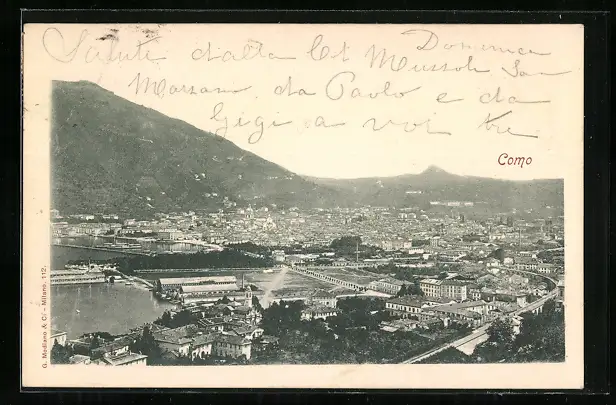 Salute dalla
Domenica
Marsano da Paolo e da
Gigi a voi tre
Como
G. Modiano & C.i - Milano. 112.